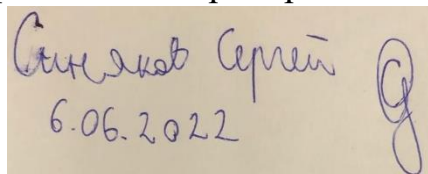 Синяков Сергей
6.06.2022